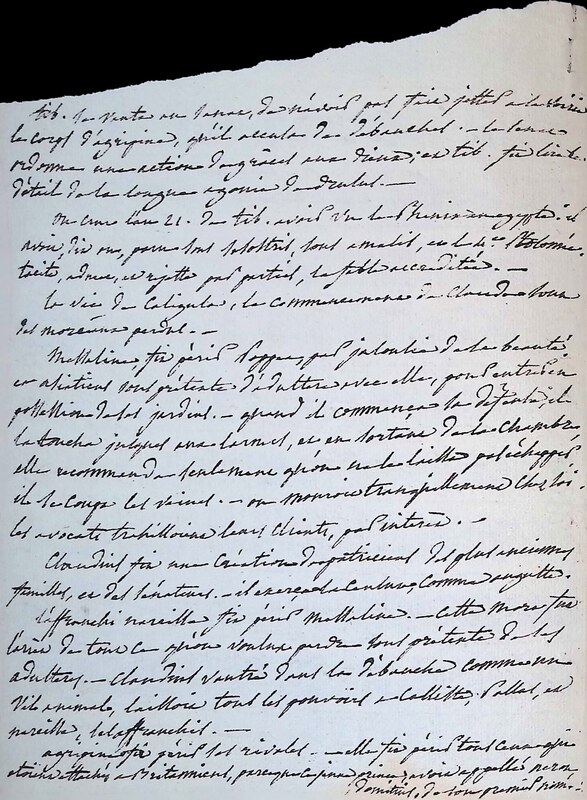 tib. se vanta au senat, de n'avoir pas fait jetter à la voirie
le corps d'agripine, qu'il accusa de débauches. - le senat
ordonna une action de graces aux dieux; et tib. fit lire le
détail de la longue agonie de drusus. -
on crut l'an 21. de tib. avoir vu le Phenix en egypte. il
avoit, dit on, paru sous sesostris, sous amasis, et le 4e Ptolomée.
tacite, admet, et rejette par parties, la fable accréditée. -
la vie de Caligula, le commencement de Claude sont
des morceaux perdus. -
Messaline, fit périr Poppea, par jalousie de la beauté
et asiaticus sous prétexte d'adultere avec elle, pour entrer en
possession de ses jardins. - quand il commença sa défense, il
la toucha jusques aux larmes, et en sortant de la chambre,
elle recommanda seulement qu'on ne le laissa pas échapper
il se coupa les veines. - on mouroit tranquillement chez soi.
les avocats trahissoient leurs clients, par interêt. -
Claudius fit une création de patriciens des plus anciennes
familles, et des sénateurs. - il exerça la censure, comme auguste.
l'affranchi narcisse fit périr Messaline. - Cette mort fut
l'arrêt de tous ce qu'on voulut perdre sous prétexte de ses
adulteres. - Claudius vautré dans la débauche comme un
vil animal, laissoit tous les pouvoirs à Calliste, Pallas, et
narcisse, ses affranchis. -
agripine fit périr ses rivales. - elle fit périr tous ceux qui
etoient attachés a Britannicus, parce que ce jeune prince, avoit appellé neron
domitius, de son premier nom.